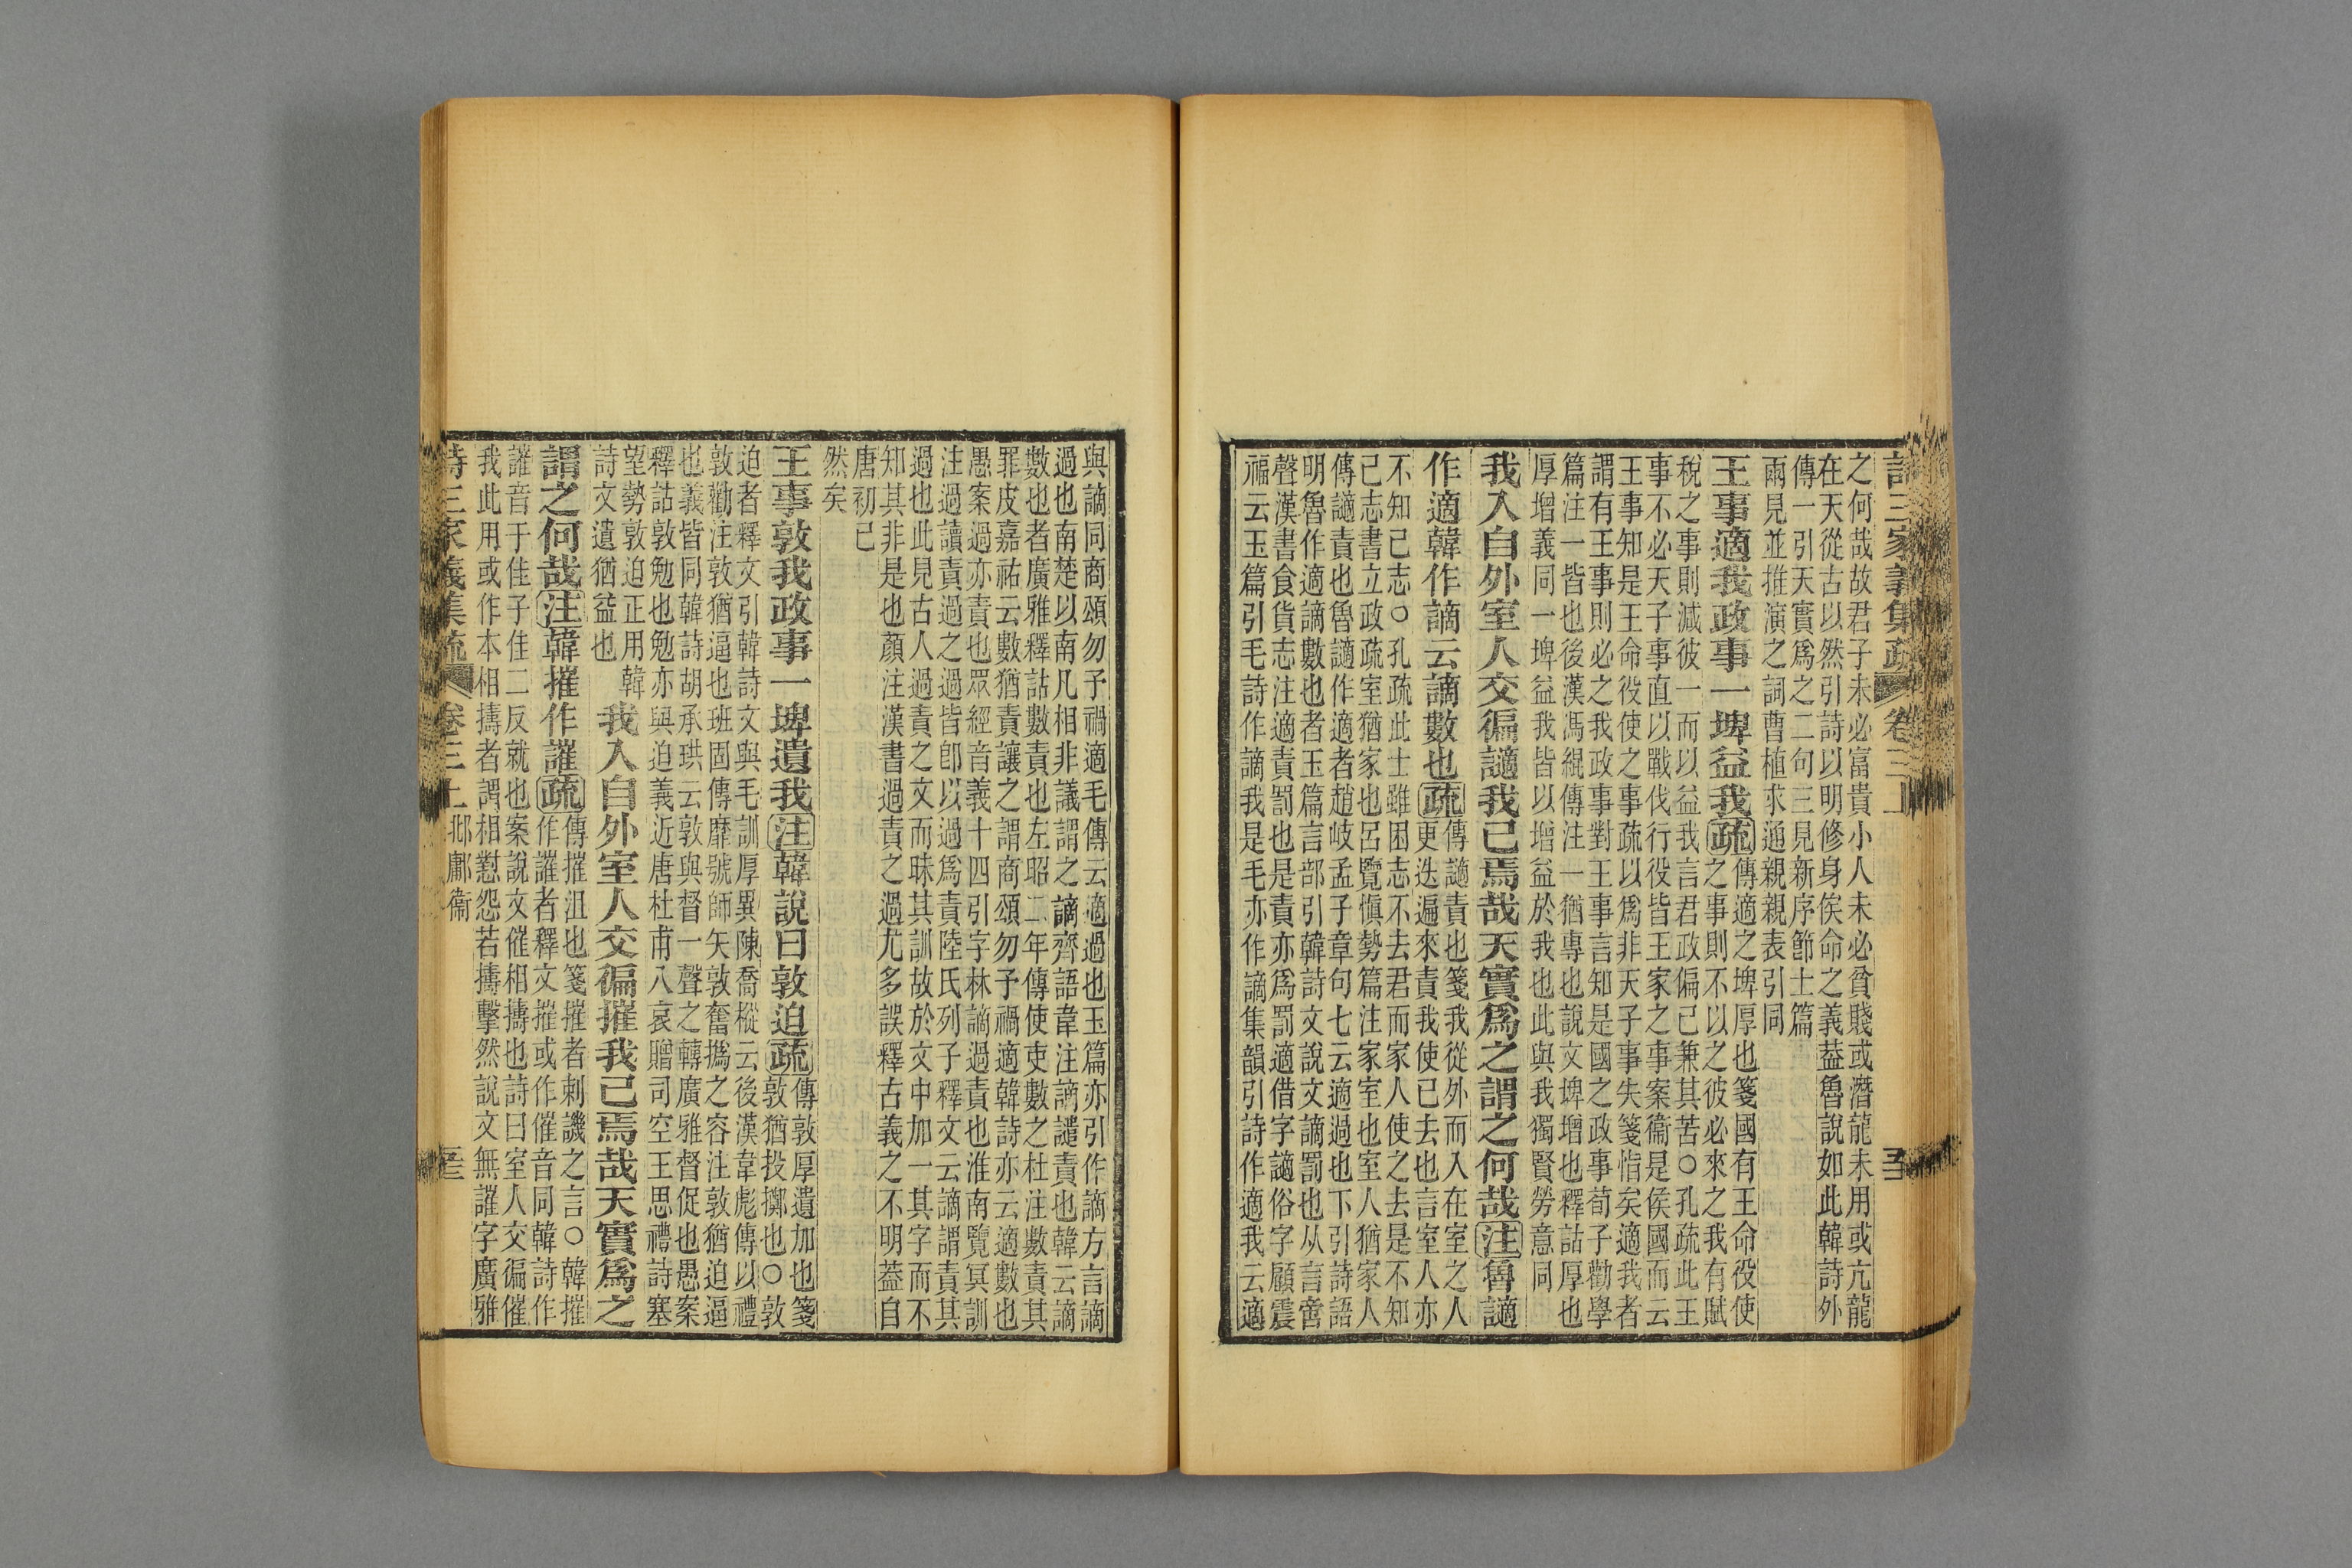 詩三家義集疏 卷三上
之何哉故君子未必富貴小人未必貧賤或潛龍未用或亢龍
在天從古以然引詩以明修身俟命之義葢魯說如此韓詩外
傳一引天實爲之二句三見新序節士篇
兩見並推演之詞曹植求通親親表引同
王事適我政事一埤益我疏
傳適之埤厚也箋國有王命役使
之事則不以之彼必來之我有賦
稅之事則減彼一而以益我言君政偏己兼其苦○孔疏此王
事不必天子事直以戰伐行役皆王家之事案衞是侯國而云
王事知是王命役使之事疏以爲非天子事失箋恉矣適我者
謂有王事則必之我政事對王事言知是國之政事荀子勸學
篇注一皆也後漢馮緄傳注一猶專也說文埤增也釋詁厚也
厚增義同一埤益我皆以增益於我也此與我獨賢勞意同
我入自外室人交徧讁我已焉哉天實爲之謂之何哉注魯讁
作適韓作謫云謫數也疏
傳讁責也箋我從外而入在室之人
更迭遍來責我使己去也言室人亦
不知己志○孔疏此士雖困志不去君而家人使之去是不知
己志書立政疏室猶家也呂覽愼勢篇注家室也室人猶家人
傳讁責也魯讁作適者趙岐孟子章句七云適過也下引詩語
明魯作適謫數也者玉篇言部引韓詩文說文謫罰也从言啻
聲漢書食貨志注適責罰也是責亦爲罰適借字讁俗字顧震
福云玉篇引毛詩作謫我是毛亦作謫集韻引詩作適我云適
與謫同商頌勿予禍適毛傳云適過也玉篇亦引作謫方言謫
過也南楚以南凡相非議謂之謫齊語韋注謫譴責也韓云謫
數也者廣雅釋詁數責也左昭二年傳使吏數之杜注數責其
罪皮嘉祐云數猶責讓之謂商頌勿予禍適韓詩亦云適數也
愚案過亦責也眾經音義十四引字林謫過責也淮南覽冥訓
注過讀責過之過皆卽以過爲責陸氏列子釋文云謫謂責其
過也此見古人過責之文而昧其訓故於文中加一其字而不
知其非是也顏注漢書過責之過尤多誤釋古義之不明葢自
唐初已
然矣
王事敦我政事一埤遺我注韓說曰敦迫疏
傳敦厚遺加也箋
敦猶投擲也○敦
迫者釋文引韓詩文與毛訓厚異陳喬樅云後漢韋彪傳以禮
敦勸注敦猶逼也班固傳靡號師矢敦奮撝之容注敦猶迫逼
也義皆同韓詩胡承珙云敦與督一聲之轉廣雅督促也愚案
釋詁敦勉也勉亦與迫義近唐杜甫八哀贈司空王思禮詩塞
望勢敦迫正用韓
詩文遺猶益也
我入自外室人交徧摧我已焉哉天實爲之
謂之何哉注韓摧作讙疏
傳摧沮也箋摧者刺譏之言○韓摧
作讙者釋文摧或作催音同韓詩作
讙音于佳子佳二反就也案說文催相擣也詩曰室人交徧催
我此用或作本相擣者謂相懟怨若擣擊然說文無讙字廣雅
詩三家義集疏 卷三上 邶鄘衞